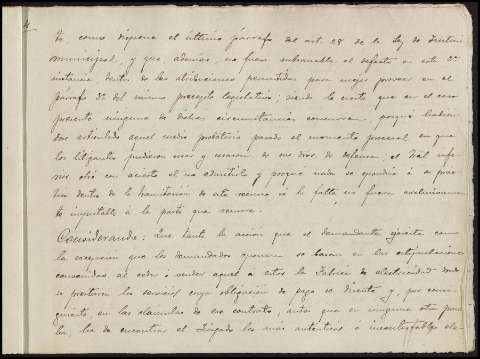 to, como dispone el último párrafo del art. 28 de la Ley de Justicia
municipal, y que, además, no fuese subsanable el defecto en esta 2ª
instancia, dentro de las atribuciones permitidas para mejor proveer en el
párrafo 2º del mismo precepto legislativo; siendo lo cierto que en el caso
presente ninguna de dichas circunstancias concurren, porque habién-
dose articulado aquel medio probatorio pasado el momento procesal en que
los litigantes pudieron usar y usaron de sus dros. de defensa, el Tral infe-
rior obró con acierto al no admitirlo y porque nada se pondría á su prác-
tica dentro de la tramitación de este recurso si la falta no fuera exclusivamen-
te imputable á la parte que recurre.
Considerando: Que tanto la acción que el demandante ejercita como
la excepción que los demandados oponen se basan en las estipulaciones
convenidas al ceder ó vender aquel á estos la Fábrica de electricidad donde
se prestaron los servicios cuya obligación de pago se discute y, por consi-
guiente, en las cláusulas de ese contrato, antes que en ninguna otra prue-
ba, ha de encontrar el Juzgado los más auténticos é incontestables ele-